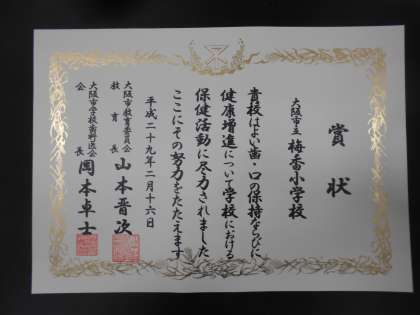 賞状
大阪市立 梅香小学校
貴校はよい歯・口の保持ならびに
健康増進について学校における
保健活動に尽力されました
ここにその努力をたたえます
平成二十九年二月十六日
大阪市教育委員会
教育長 山本晋次
大阪市学校歯科医会
会長 岡本卓士